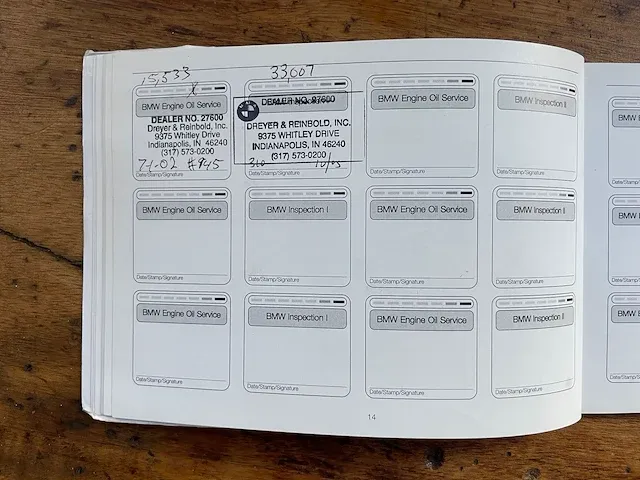 15,533
33,007
BMW Engine Oil Service
DEALER NO. 27600
Dreyer & Reinbold, Inc.
9375 Whitley Drive
Indianapolis, IN 46240
(317) 573-0200
Date/Stamp/Signature
DEALER NO. 27600
DREYER & REINBOLD, INC.
9375 WHITLEY DRIVE
INDIANAPOLIS, IN 46240
(317) 573-0200
310 10/03
Date/Stamp/Signature
BMW Engine Oil Service
Date/Stamp/Signature
BMW Inspection II
Date/Stamp/Signature
BMW Engine Oil Service
Date/Stamp/Signature
BMW Inspection I
Date/Stamp/Signature
BMW Engine Oil Service
Date/Stamp/Signature
BMW Inspection II
Date/Stamp/Signature
BMW Engine Oil Service
Date/Stamp/Signature
BMW Inspection I
Date/Stamp/Signature
BMW Engine Oil Service
Date/Stamp/Signature
BMW Inspection II
Date/Stamp/Signature
14